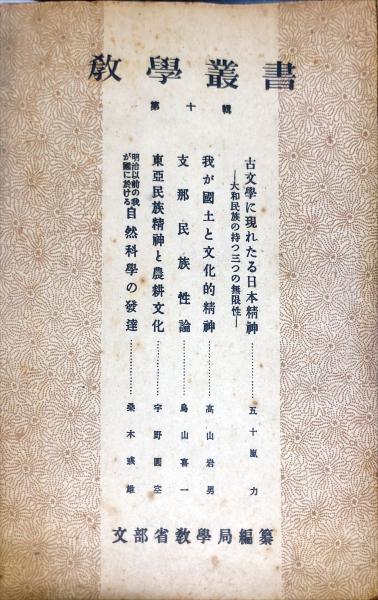 教學叢書
第十輯
古文學に現れたる日本精神…………五十嵐力
―大和民族の持つ三つの無限性―
我が國土と文化的精神…………高山岩男
支那民族性論…………鳥山喜一
東亞民族精神と農耕文化…………宇野圓空
明治以前の我が國に於ける自然科學の發達…………桑木彧雄
文部省教學局編纂